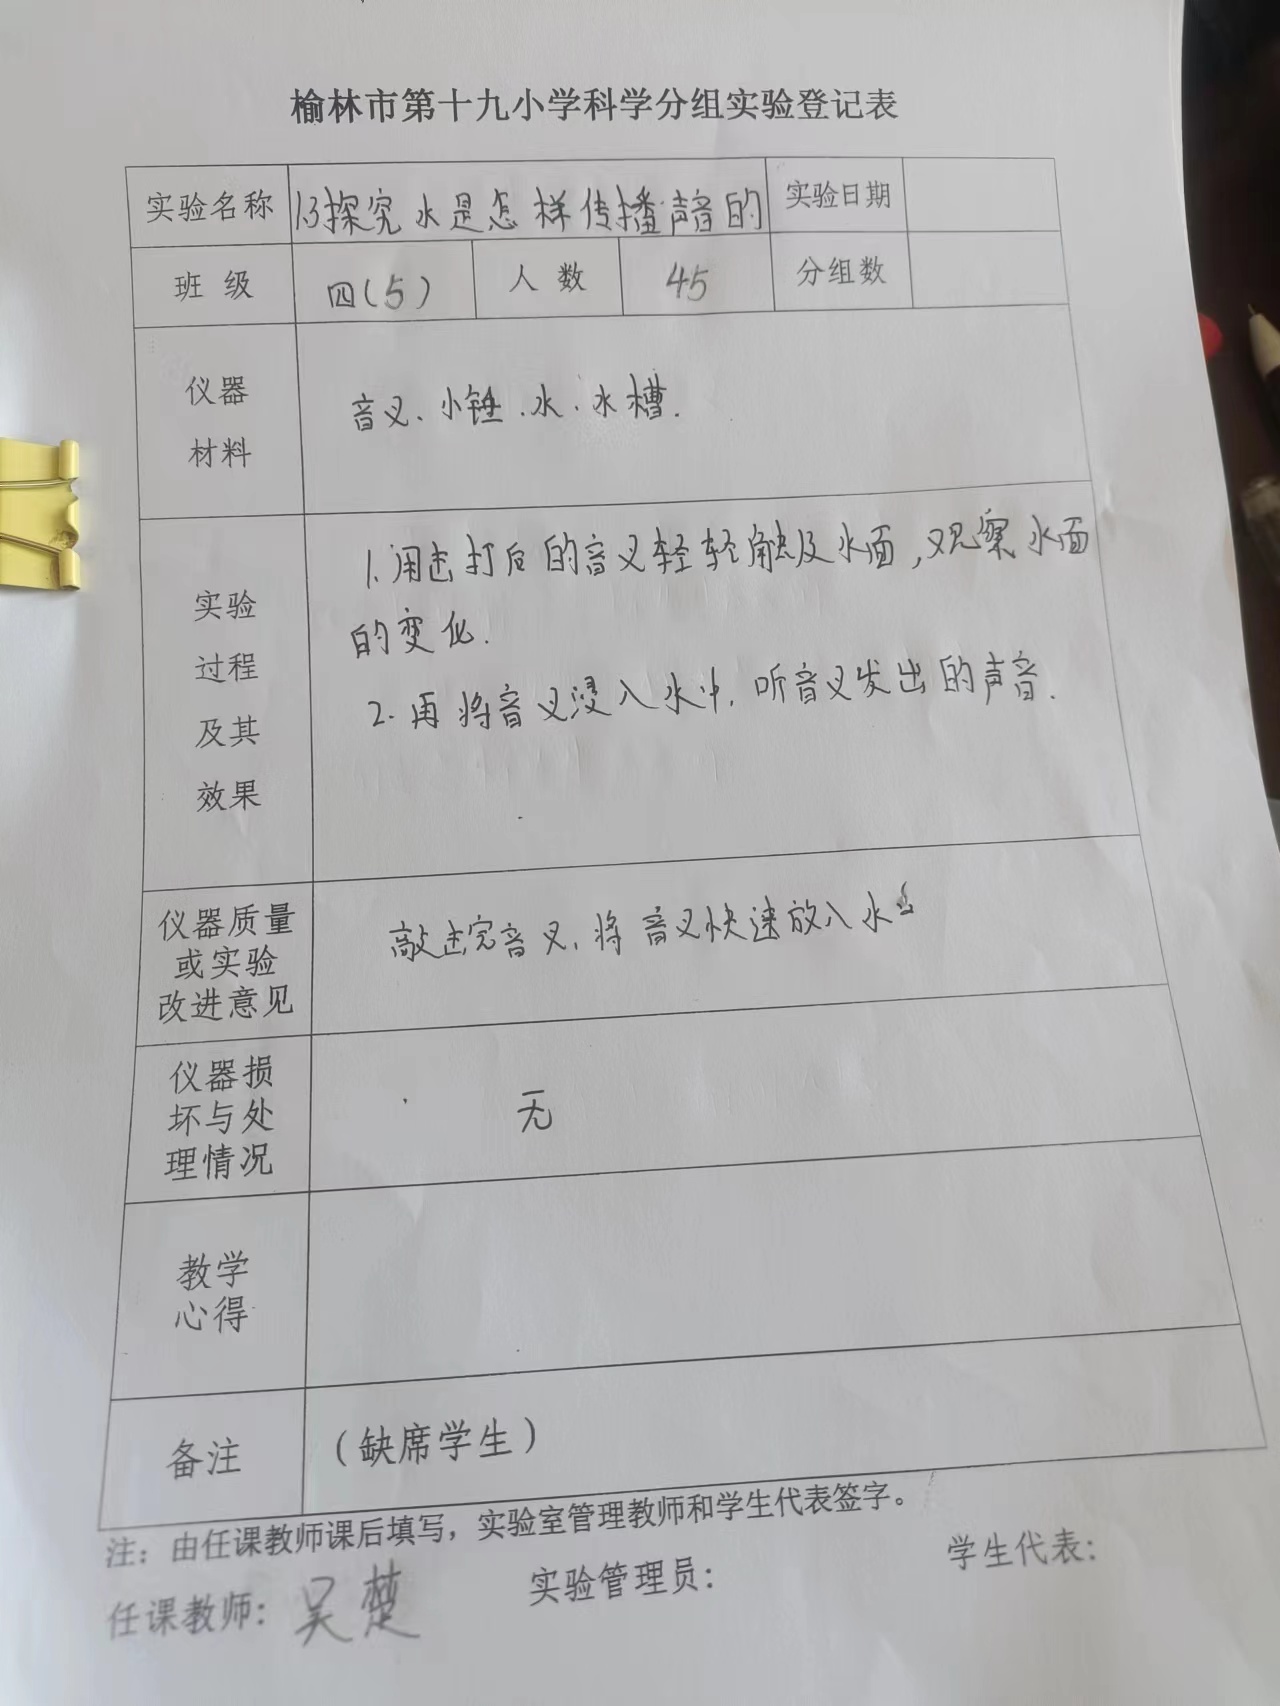 榆林市第十九小学科学分组实验登记表
实验名称 1.3探究水是怎样传播声音的 实验日期
班 级 四(5) 人 数 45 分组数
仪器
材料
音叉、小锤、水、水槽.
实验
过程
及其
效果
1.用击打后的音叉轻轻触及水面,观察水面
的变化.
2.再将音叉浸入水中,听音叉发出的声音.
仪器质量
或实验
改进意见
敲击完音叉,将音叉快速放入水
仪器损
坏与处
理情况
无
教学
心得
备注 (缺席学生)
注：由任课教师课后填写，实验室管理教师和学生代表签字。
任课教师：吴楚 实验管理员： 学生代表：